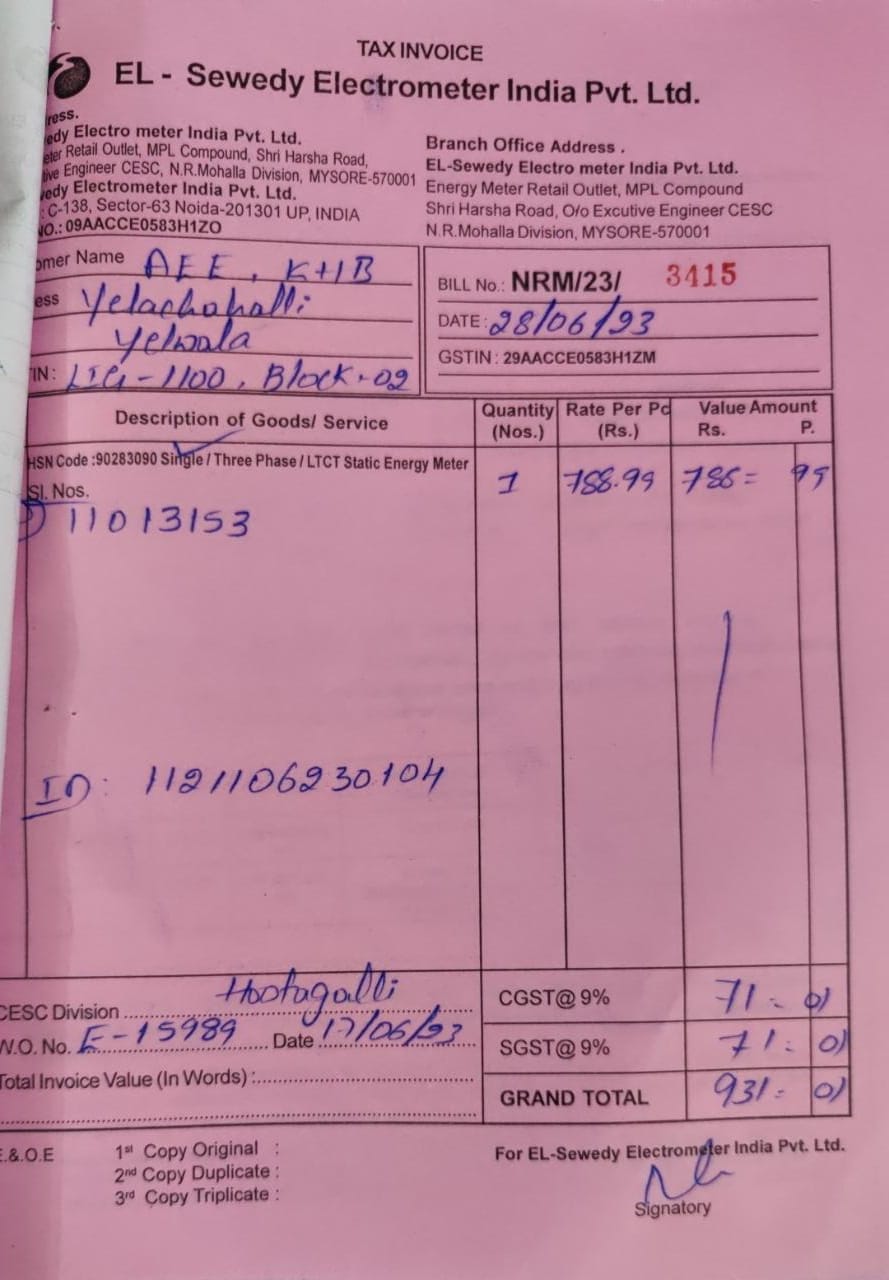 TAX INVOICE
EL - Sewedy Electrometer India Pvt. Ltd.
ress.
edy Electro meter India Pvt. Ltd.
eter Retail Outlet, MPL Compound, Shri Harsha Road,
ive Engineer CESC, N.R.Mohalla Division, MYSORE-570001
edy Electrometer India Pvt. Ltd.
: C-138, Sector-63 Noida-201301 UP, INDIA
NO.: 09AACCE0583H1ZO
Branch Office Address .
EL-Sewedy Electro meter India Pvt. Ltd.
Energy Meter Retail Outlet, MPL Compound
Shri Harsha Road, O/o Excutive Engineer CESC
N.R.Mohalla Division, MYSORE-570001
omer Name AEE, KHB
ess Yelachahalli
Yelwala
IN: LIG-1100, Block-02
BILL No.: NRM/23/ 3415
DATE: 28/06/23
GSTIN : 29AACCE0583H1ZM
Description of Goods/ Service Quantity (Nos.) Rate Per Pc (Rs.) Value Amount Rs. P.
HSN Code :90283090 Single / Three Phase / LTCT Static Energy Meter
1 788.99 788= 99
Sl. Nos.
1) 11013153
ID: 1121106230104
CESC Division Hootagalli
W.O. No. E-15989 Date 17/06/23
Total Invoice Value (In Words) :
CGST@ 9% 71- 01
SGST@ 9% 71- 01
GRAND TOTAL 931- 01
E.&.O.E
1st Copy Original :
2nd Copy Duplicate :
3rd Copy Triplicate :
For EL-Sewedy Electrometer India Pvt. Ltd.
Signatory